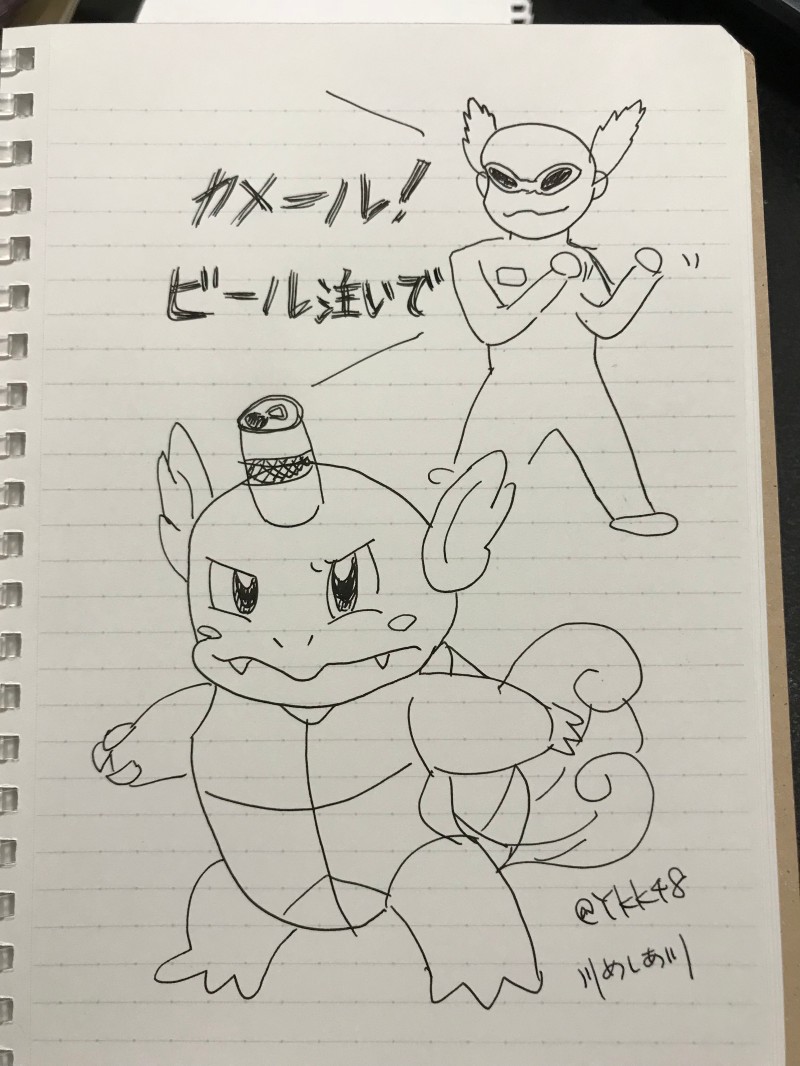 カメール!
ビール注いで
@Ykk48
川めしあ川